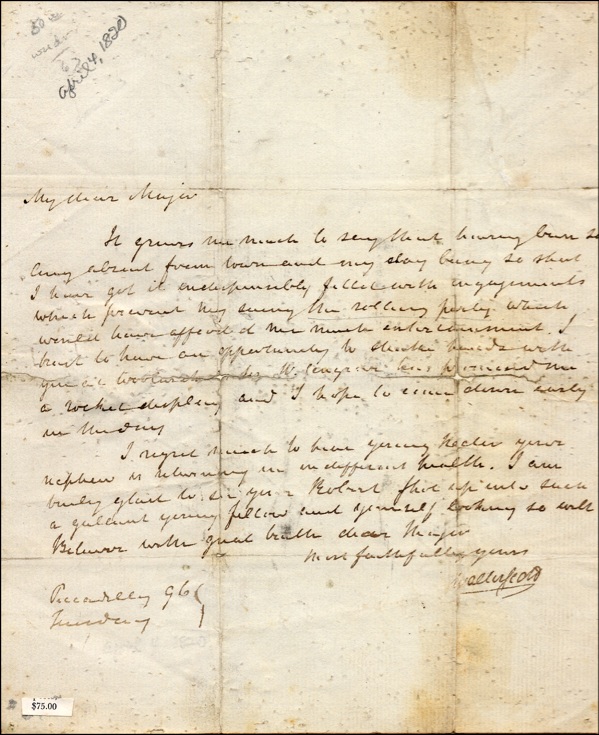 april 4, 1820
My dear Major
It grieves me much to say that having been so
long absent from town and my day being so short
I have got it indispensibly filled with engagements
which prevent my seeing the rolling party which
would have afforded me much entertainment. I
trust to have an opportunity to shake hands with
you at Woolwich Sir W. Congreve has promised me
a rocket display and I hope to come down early
in the day
I regret much to hear young Hector your
nephew is returning in indifferent health. I am
truly glad to see your Robert shot up into such
a gallant young fellow and yourself looking so well
Believe with great truth dear Major
Most faithfully yours
Walter Scott
Piccadilly 96
Tuesday
april 4 1820
$75.00